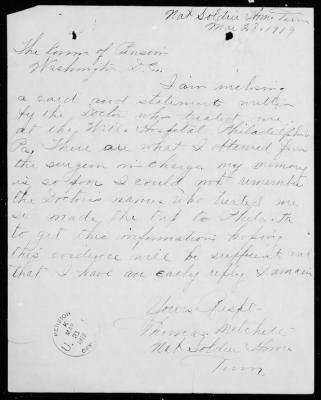 Nat Soldier Home Tenn
Mar 28, 1919
The Comm of Pension
Washington D.C.
I am inclosing
a card and statement written
by the Doctor who treated me
at the Wills Hospital Philadelphia
Pa, There are what I obtained from
the surgeon in charge my memory
is so poor I could not remember
the Doctors names who treated me
so made the trip to Phila Pa
to get this information hoping
this evidence will be sufficient and
that I have an early reply I am in
Yours Respt-
Thomas Mitchell
Nat Soldier Home
Tenn
PENSION
MAR 31 1919
U.S.
OFF.